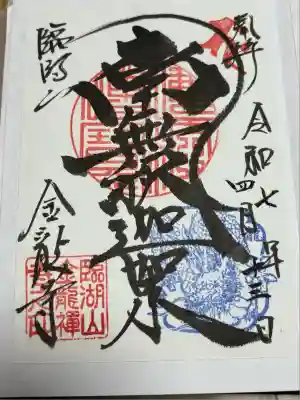 奉拝
令和七年
四月十三日
南無釈迦如来
臨湖山
金龍寺
臨湖山
金龍禅